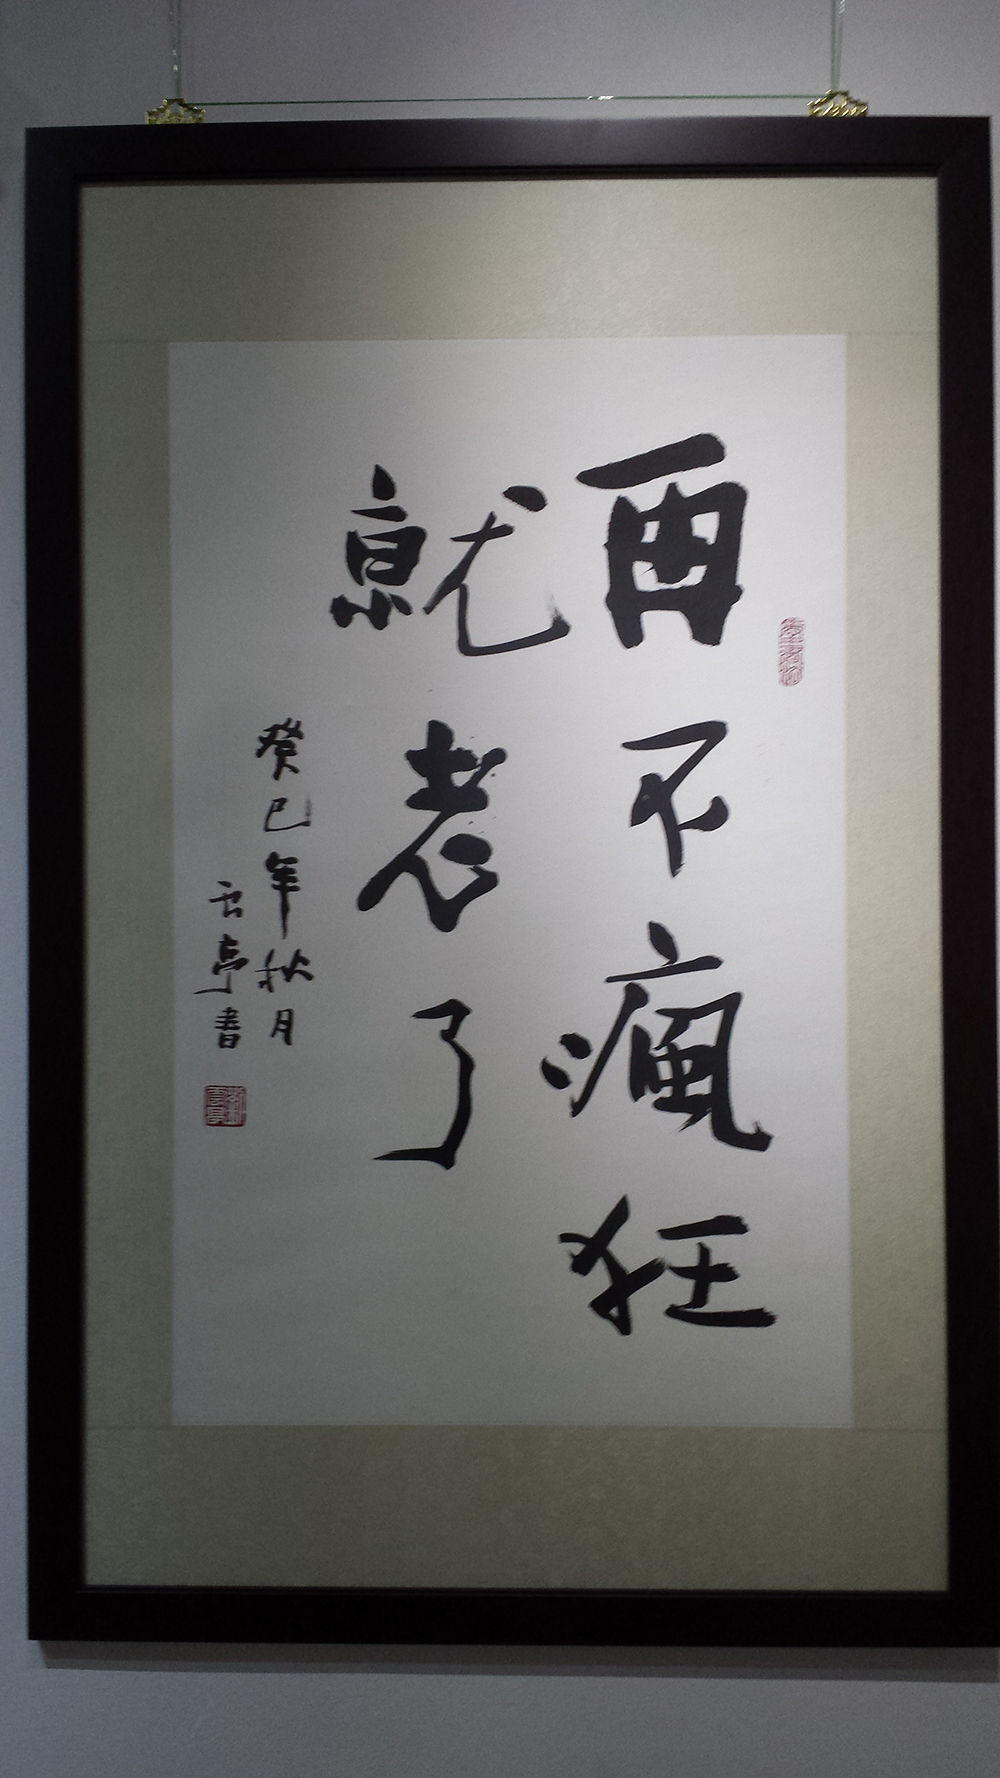 再不瘋狂
就老了
癸巳年秋月
云亭書